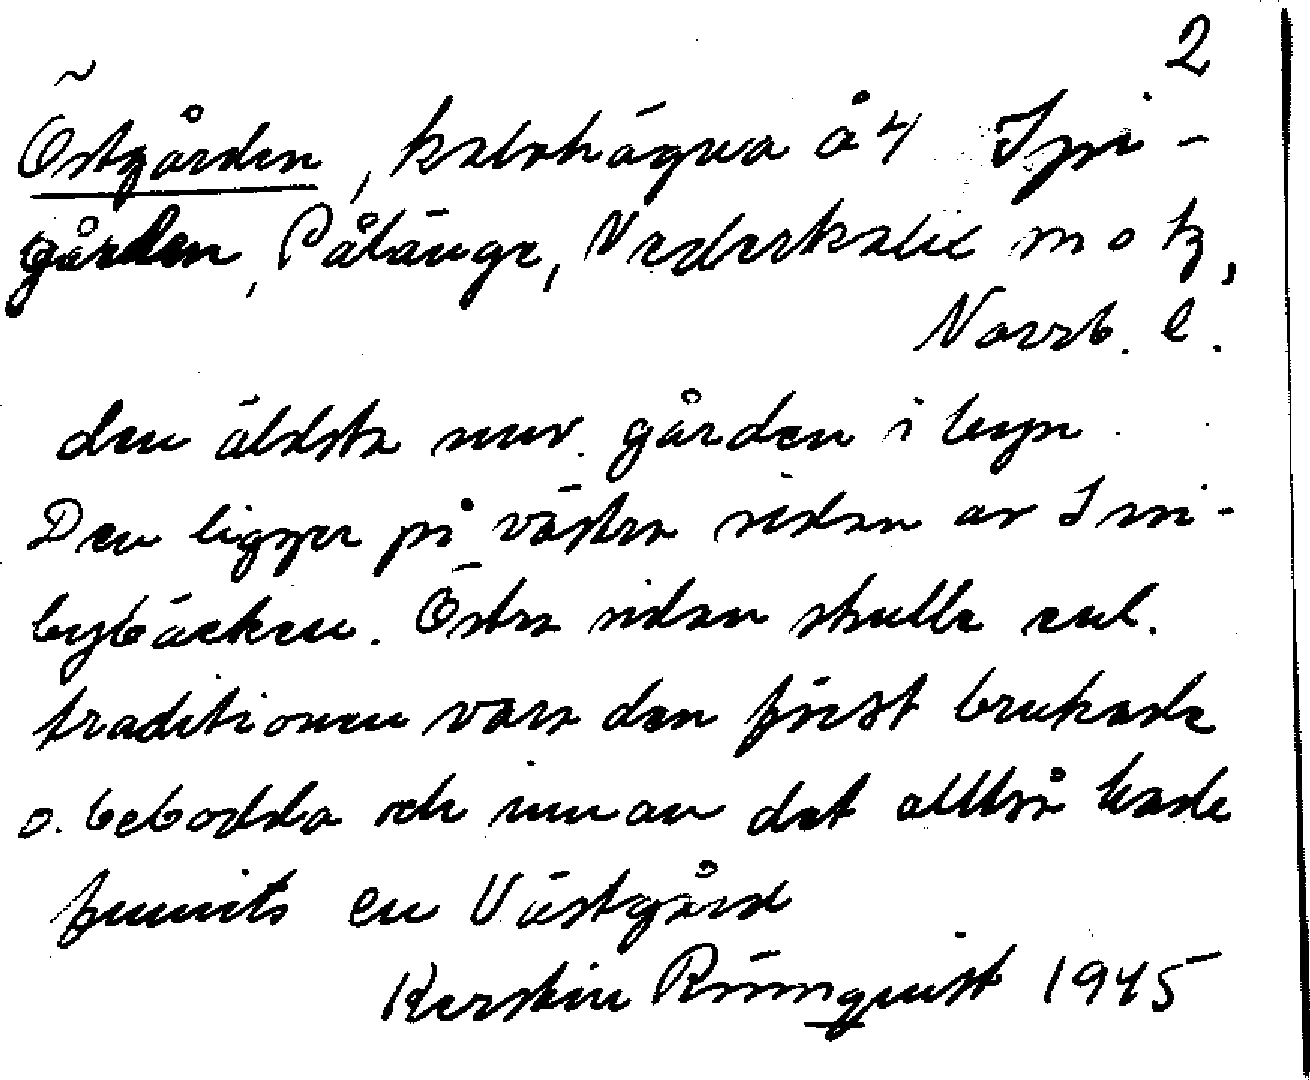 2
Östgården, kalvhägna å 4
gården, Pålänge, Nederkalix
Norrb. l.
den äldsta nuv. gården i byn.
Den ligger på västra sidan av Inri-
bybäcken. Östra sidan skulle enl.
traditionen vara den först brukade
o. bebodda och innan det alltså hade
funnits en Västgård
Kerstin Rönnquist 1945